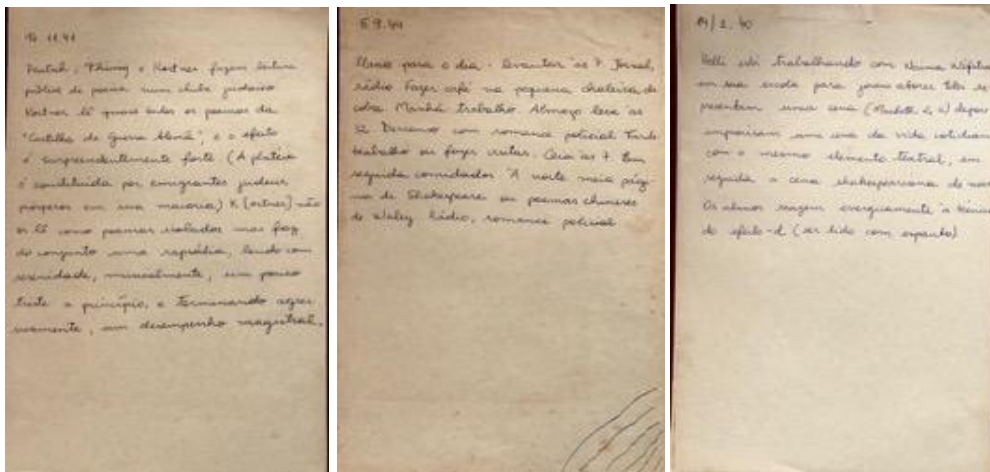 14.11.41
Deutsch, Thimig e Kortner fazem leitura
pública de poesia num clube judaico
Kortner lê quase todos os poemas da
"Cartilha de Guerra Alemã", e o efeito
é surpreendentemente forte (A platéia
é constituída por emigrantes judeus
prósperos em sua maioria) K[ortner] não
os lê como poemas isolados mas faz
do conjunto uma rapsódia, lendo com
serenidade, musicalmente, um pouco
triste a princípio, e terminando agres
sivamente, um desempenho magistral.
5 9.44
Plano para o dia - levantar às 7. Jornal,
rádio Fazer café na pequena chaleira de
cobre. Manhã trabalho. Almoço leve às
12 Descanso com romance policial Tarde
trabalho ou fazer visitas. Ceia às 7. Em
seguida convidados À noite meia pági
na de Shakespeare ou poemas chineses
de Waley Rádio, romance policial
14/1.40
Helli está trabalhando com Naima
em sua escola para jovens atores Eles re
presentam uma cena (Macbeth 2, 2) depois
uma cena da vida cotidiana
com o mesmo elemento teatral, em
seguida a cena shakespeariana de novo
Os alunos reagem energicamente à técnica
do efeito-d (ser lido com espanto)